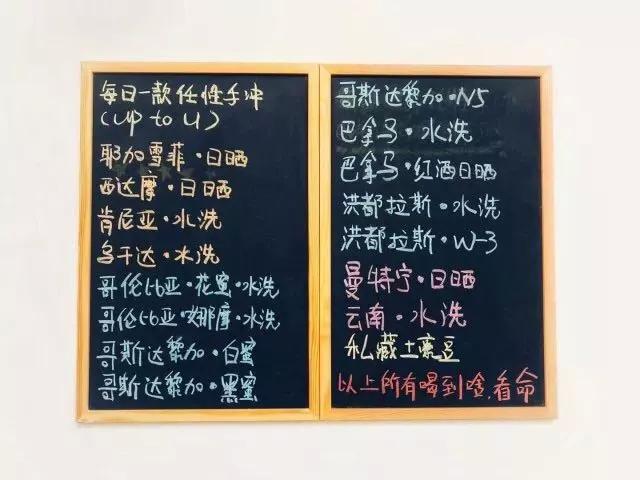 每日一款任性手冲
(up to U)
耶加雪菲·日晒
西达摩·日晒
肯尼亚·水洗
乌干达·水洗
哥伦比亚·花蜜·水洗
哥伦比亚·娜摩·水洗
哥斯达黎加·白蜜
哥斯达黎加·黑蜜
哥斯达黎加·N5
巴拿马·水洗
巴拿马·红酒日晒
洪都拉斯·水洗
洪都拉斯·W-3
曼特宁·日晒
云南·水洗
私藏土豪豆
以上所有喝到啥,看命